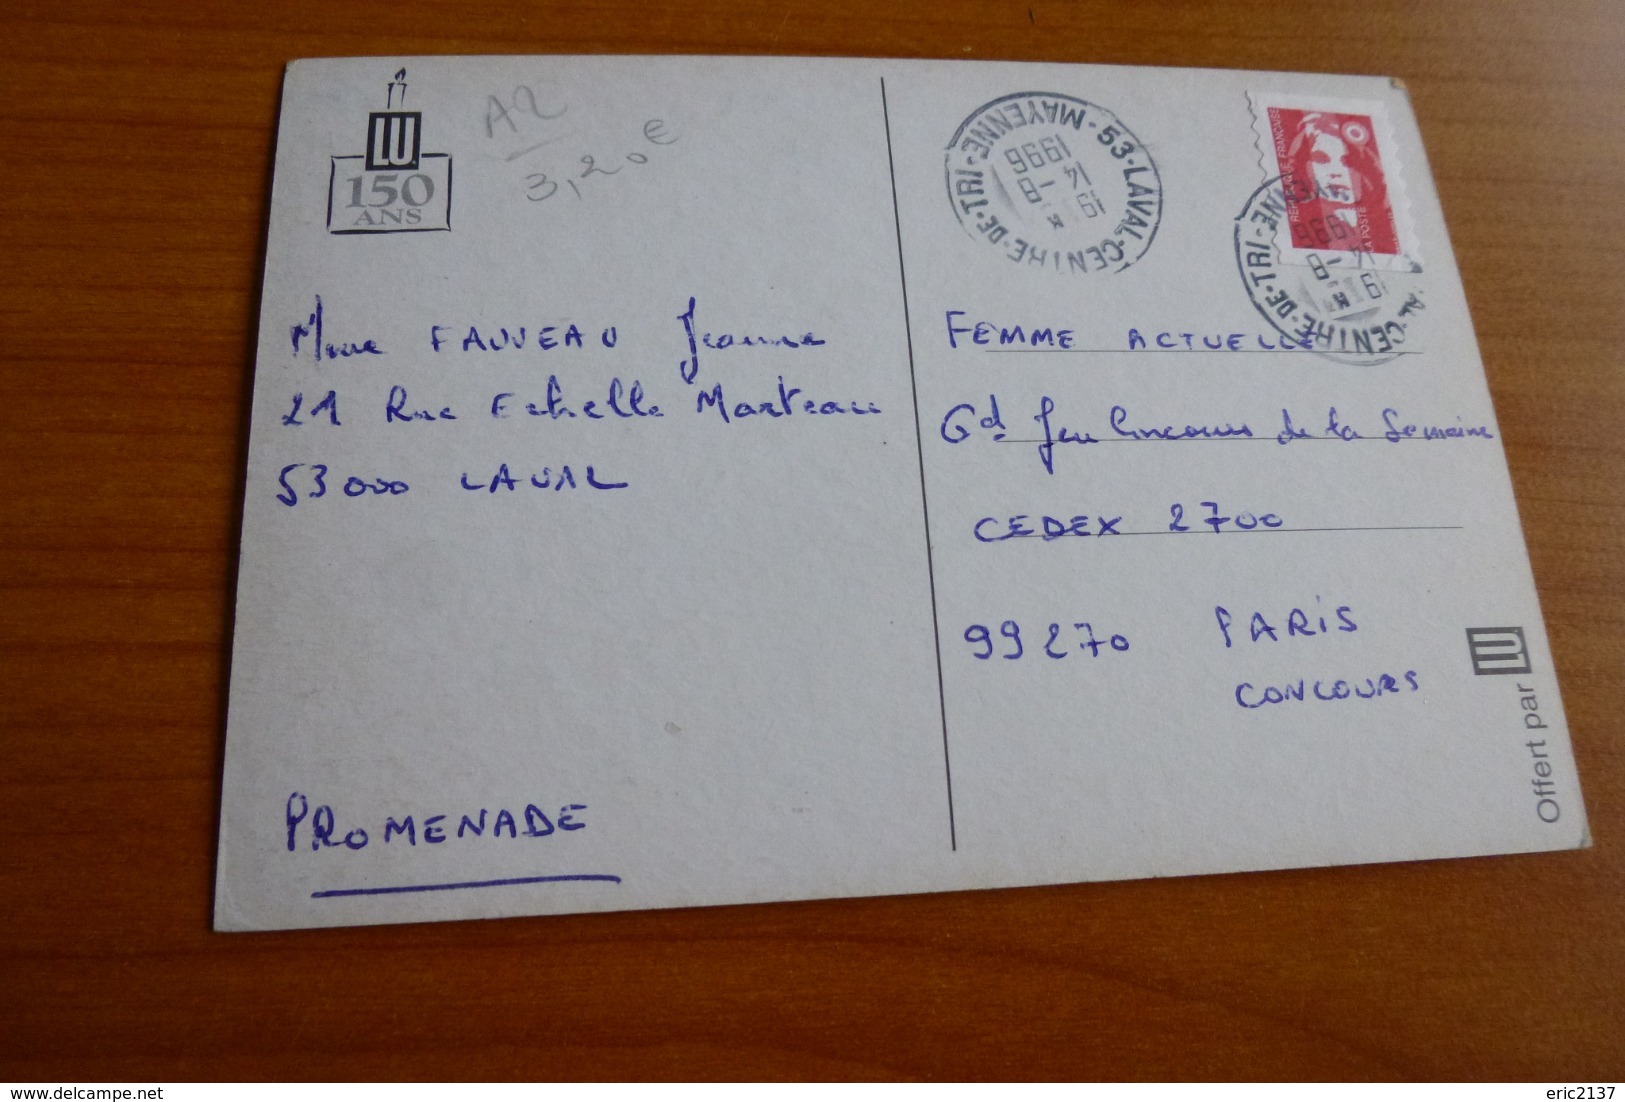 LU
150
ANS
A2
3,20€
Mme FAUVEAU Jeanne
21 Rue Echelle Marteau
53000 LAVAL
PROMENADE
53-LAVAL-CENTRE-DE-TRI-MAYENNE-
19 H
14 -8
1996
RÉPUBLIQUE FRANÇAISE
LA POSTE
AL-CENTRE-DE-TRI-
19 H
14 -8
1996
FEMME ACTUELLE
Gd Jeu Concours de la Semaine
CEDEX 2700
99270 PARIS
CONCOURS
Offert par LU
delcampe.net
eric2137